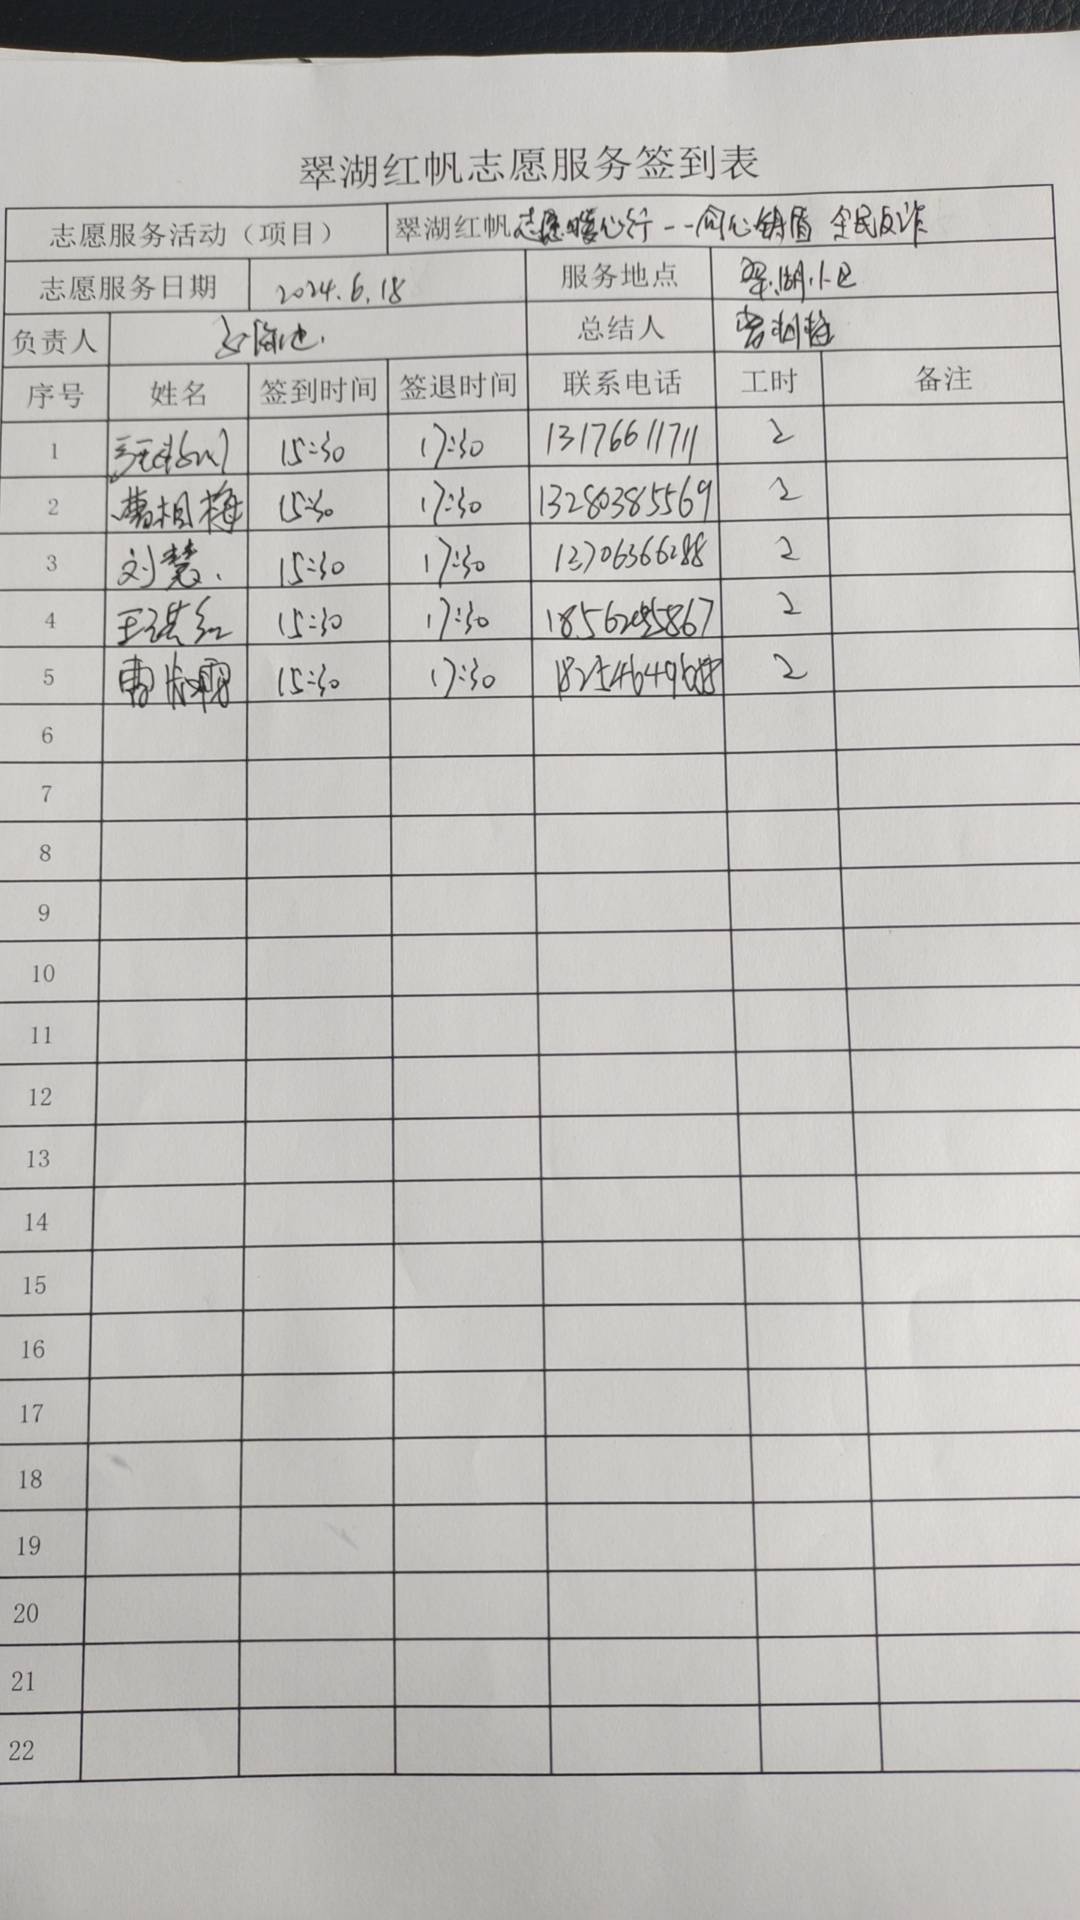 翠湖红帆志愿服务签到表
志愿服务活动（项目） 翠湖红帆志愿暖心行--同心铸盾 全民反诈
志愿服务日期 2024.6.18 服务地点 翠湖小区
负责人 总结人 曹相梅
序号 姓名 签到时间 签退时间 联系电话 工时 备注
1 15:30 17:30 13176611711 2
2 曹相梅 15:30 17:30 13280385569 2
3 刘慧 15:30 17:30 13706366288 2
4 15:30 17:30 2
5 15:30 17:30 2
6
7
8
9
10
11
12
13
14
15
16
17
18
19
20
21
22